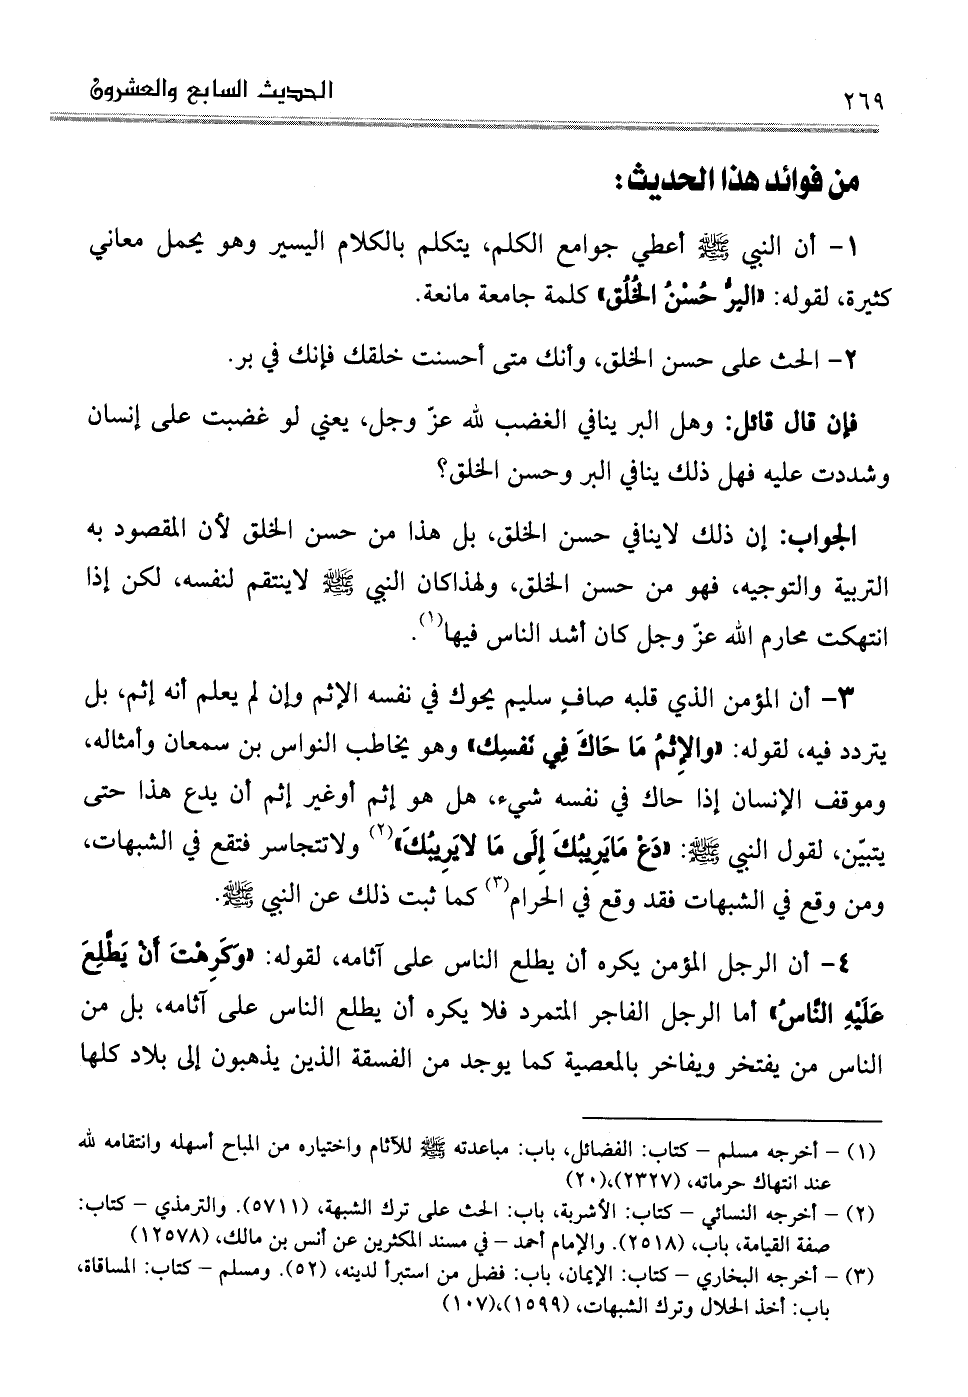 ٢٦٩ الحديث السابع والعشرون
من فوائد هذا الحديث:
١- أن النبي ﷺ أعطي جوامع الكلم، يتكلم بالكلام اليسير وهو يحمل معاني
كثيرة، لقوله: «البرُّ حُسْنُ الخُلُق» كلمة جامعة مانعة.
٢- الحث على حسن الخلق، وأنك متى أحسنت خلقك فإنك في بر.
فإن قال قائل: وهل البر ينافي الغضب لله عزّ وجل، يعني لو غضبت على إنسان
وشددت عليه فهل ذلك ينافي البر وحسن الخلق؟
الجواب: إن ذلك لاينافي حسن الخلق، بل هذا من حسن الخلق لأن المقصود به
التربية والتوجيه، فهو من حسن الخلق، ولهذاكان النبي ﷺ لاينتقم لنفسه، لكن إذا
انتهكت محارم الله عزّ وجل كان أشد الناس فيها(١).
٣- أن المؤمن الذي قلبه صافٍ سليم يحوك في نفسه الإثم وإن لم يعلم أنه إثم، بل
يتردد فيه، لقوله: «والإِثمُ مَا حَاكَ فِي نَفسِك» وهو يخاطب النواس بن سمعان وأمثاله،
وموقف الإنسان إذا حاك في نفسه شيء، هل هو إثم أوغير إثم أن يدع هذا حتى
يتبيّن، لقول النبي ﷺ: «دَعْ مَايَرِيبُكَ إِلَى مَا لايَرِيبُكَ»(٢) ولاتتجاسر فتقع في الشبهات،
ومن وقع في الشبهات فقد وقع في الحرام(٣) كما ثبت ذلك عن النبي ﷺ.
٤- أن الرجل المؤمن يكره أن يطلع الناس على آثامه، لقوله: «وَكَرِهْتَ أَنْ يَطَّلِعَ
عَلَيْهِ النَّاسُ» أما الرجل الفاجر المتمرد فلا يكره أن يطلع الناس على آثامه، بل من
الناس من يفتخر ويفاخر بالمعصية كما يوجد من الفسقة الذين يذهبون إلى بلاد كلها
(١) - أخرجه مسلم - كتاب: الفضائل، باب: مباعدته ﷺ للآثام واختياره من المباح أسهله وانتقامه لله
عند انتهاك حرماته، (٢٣٢٧)،(٢٠)
(٢) - أخرجه النسائي - كتاب: الأشربة، باب: الحث على ترك الشبهة، (٥٧١١). والترمذي - كتاب:
صفة القيامة، باب، (٢٥١٨). والإمام أحمد - في مسند المكثرين عن أنس بن مالك، (١٢٥٧٨)
(٣) - أخرجه البخاري - كتاب: الإيمان، باب: فضل من استبرأ لدينه، (٥٢). ومسلم - كتاب: المساقاة،
باب: أخذ الحلال وترك الشبهات، (١٥٩٩)،(١٠٧)